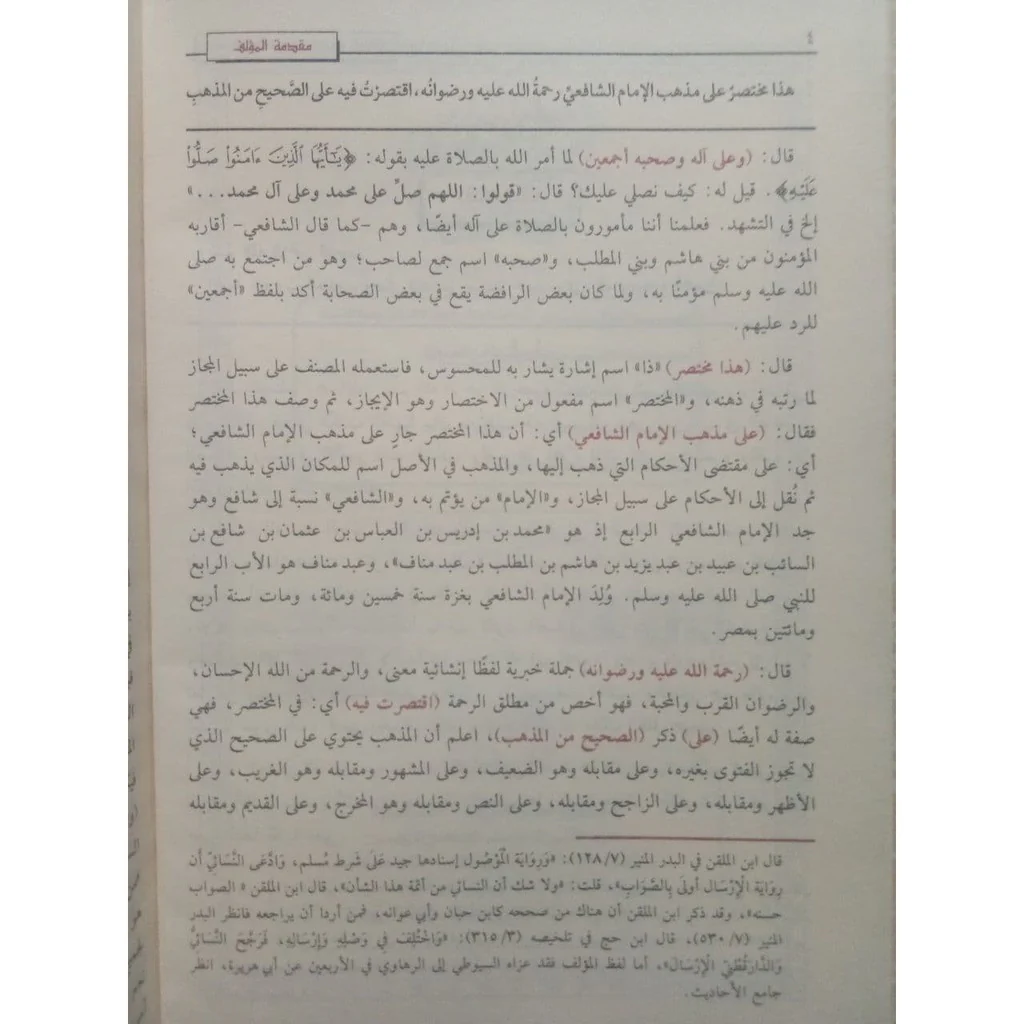 ٤
مقدمة المؤلف
هذا مختصرٌ على مذهب الإمام الشافعيِّ رحمةُ الله عليه ورضوانُه، اقتصرْتُ فيه على الصَّحيحِ من المذهبِ
قال: (وعلى آله وصحبه أجمعين) لما أمر الله بالصلاة عليه بقوله: ﴿يَٰٓأَيُّهَا ٱلَّذِينَ ءَامَنُوا۟ صَلُّوا۟
عَلَيْهِ﴾. قيل له: كيف نصلي عليك؟ قال: «قولوا: اللهم صلِّ على محمد وعلى آل محمد...»
إلخ في التشهد. فعلمنا أننا مأمورون بالصلاة على آله أيضًا، وهم -كما قال الشافعي- أقاربه
المؤمنون من بني هاشم وبني المطلب، و«صحبه» اسم جمع لصاحب؛ وهو من اجتمع به صلى
الله عليه وسلم مؤمنًا به، ولما كان بعض الرافضة يقع في بعض الصحابة أكد بلفظ «أجمعين»
للرد عليهم.
قال: (هذا مختصر) «ذا» اسم إشارة يشار به للمحسوس، فاستعمله المصنف على سبيل المجاز
لما رتبه في ذهنه، و«المختصر» اسم مفعول من الاختصار وهو الإيجاز، ثم وصف هذا المختصر
فقال: (على مذهب الإمام الشافعي) أي: أن هذا المختصر جارٍ على مذهب الإمام الشافعي؛
أي: على مقتضى الأحكام التي ذهب إليها، والمذهب في الأصل اسم للمكان الذي يذهب فيه
ثم نُقل إلى الأحكام على سبيل المجاز، و«الإمام» من يؤتم به، و«الشافعي» نسبة إلى شافع وهو
جد الإمام الشافعي الرابع إذ هو «محمد بن إدريس بن العباس بن عثمان بن شافع بن
السائب بن عبيد بن عبد يزيد بن هاشم بن المطلب بن عبد مناف»، وعبد مناف هو الأب الرابع
للنبي صلى الله عليه وسلم. وُلِدَ الإمام الشافعي بغزة سنة خمسين ومائة، ومات سنة أربع
ومائتين بمصر.
قال: (رحمة الله عليه ورضوانه) جملة خبرية لفظًا إنشائية معنى، والرحمة من الله الإحسان،
والرضوان القرب والمحبة، فهو أخص من مطلق الرحمة (اقتصرت فيه) أي: في المختصر، فهي
صفة له أيضًا (على) ذكر (الصحيح من المذهب)، اعلم أن المذهب يحتوي على الصحيح الذي
لا تجوز الفتوى بغيره، وعلى مقابله وهو الضعيف، وعلى المشهور ومقابله وهو الغريب، وعلى
الأظهر ومقابله، وعلى الراجح ومقابله، وعلى النص ومقابله وهو المخرج، وعلى القديم ومقابله
قال ابن الملقن في البدر المنير (١٢٨/٧): «وَرِوَايَة الْمَوْصُول إسنادها جيد عَلَى شَرط مُسلم، وَادَّعَى النَّسَائِيّ أن
رِوَايَة الْإِرْسَال أولَى بِالصَّوَابِ»، قلت: «ولا شك أن النسائي من أئمة هذا الشأن»، قال ابن الملقن « الصواب
حسنه»، وقد ذكر ابن الملقن أن هناك من صححه كابن حبان وأبي عوانه، فمن أردا أن يراجعه فانظر البدر
المنير (٥٣٠/٧)، قال ابن حج في تلخيصه (٣١٥/٣): «وَاخْتُلِفَ فِي وَصْلِهِ وَإِرْسَالِهِ، فَرَجَّحَ النَّسَائِيُّ
وَالدَّارَقُطْنِيّ الْإِرْسَالَ»، أما لفظ المؤلف فقد عزاه السيوطي إلى الرهاوي في الأربعين عن أبي هريرة، انظر
جامع الأحاديث.